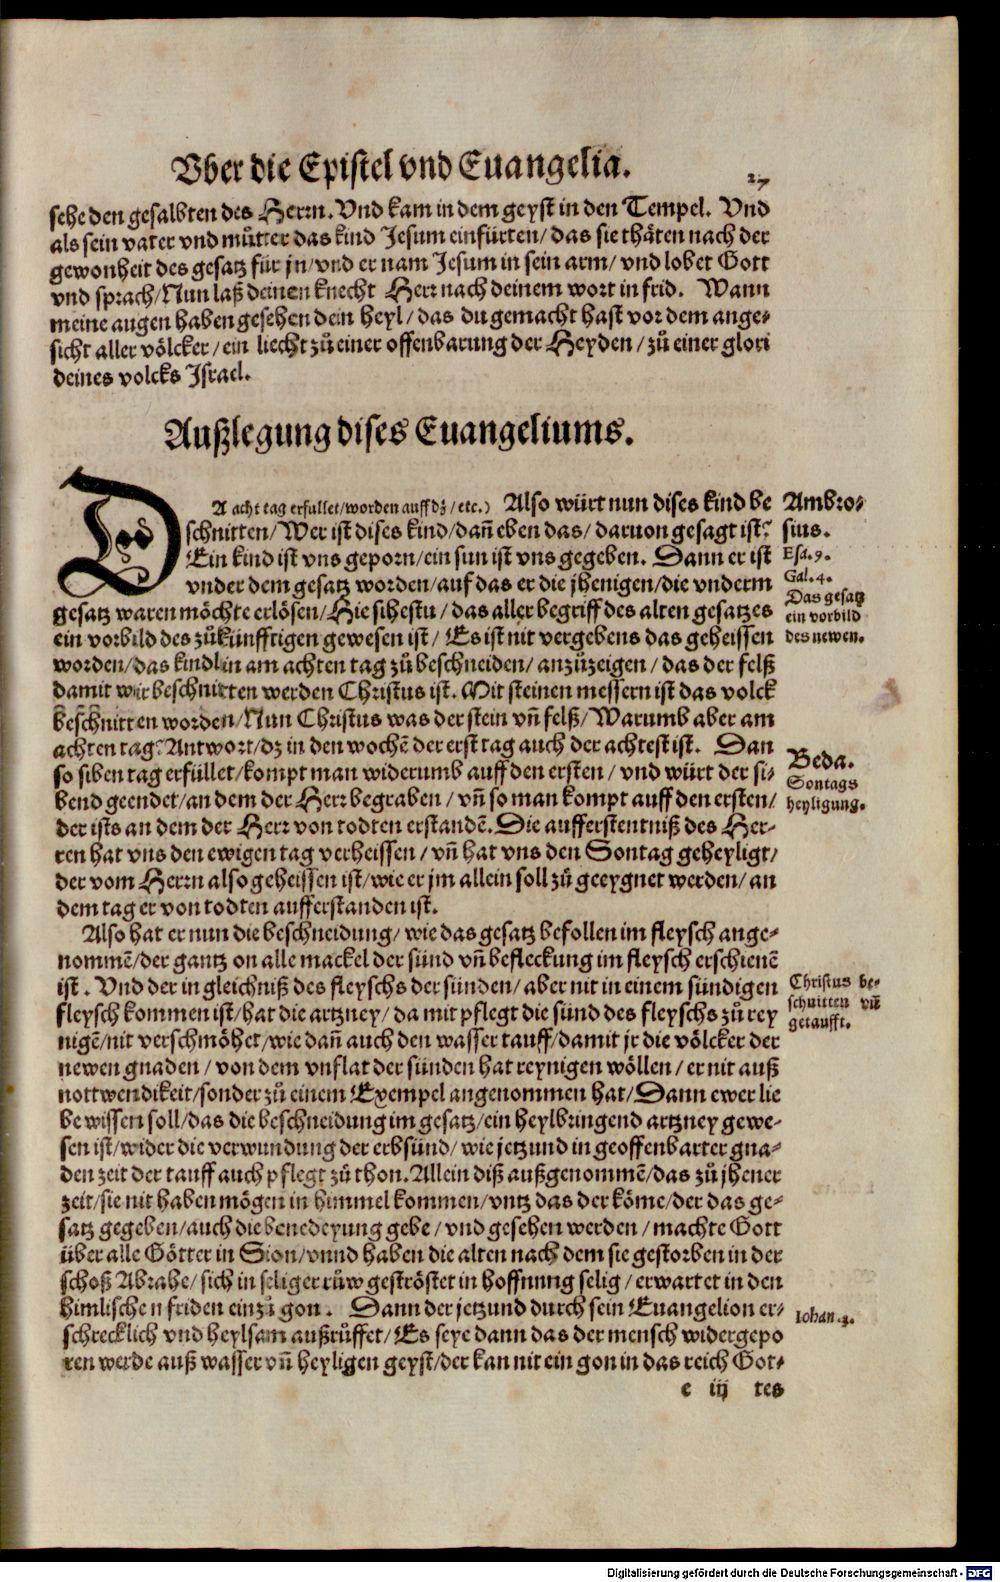 Vber die Epistel vnd Euangelia.
27
sehe den gesalbten des Herrn. Vnd kam in dem geyst in den Tempel. Vnd
als sein vater vnd můtter das kind Jesum einfürten/ das sie thäten nach der
gewonheit des gesatz für jn/ vnd er nam Jesum in sein arm/ vnd lobet Gott
vnd sprach/ Nun laß deinen knecht Herr nach deinem wort in frid. Wann
meine augen haben gesehen dein heyl/ das du gemacht hast vor dem ange-
sicht aller völcker/ ein liecht zů einer offenbarung der Heyden/ zů einer glori
deines volcks Israel.
Außlegung dises Euangeliums.
DA acht tag erfullet/ worden auff dz/ etc.) Also würt nun dises kind be
schnitten/ Wer ist dises kind/ dañ eben das/ daruon gesagt ist?
Ein kind ist vns geporn/ ein sun ist vns gegeben. Dann er ist
vnder dem gesatz worden/ auf das er die jhenigen/ die vnderm
gesatz waren möchte erlösen/ Hie sihestu/ das aller begriff des alten gesatzes
ein vorbild des zůkünfftigen gewesen ist/ Es ist nit vergebens das geheissen
worden/ das kindlin am achten tag zů beschneiden/ anzůzeigen/ das der felß
damit wir beschnitten werden Christus ist. Mit steinen messern ist das volck
beschnitten worden/ Nun Christus was der stein vñ felß/ Warumb aber am
achten tag? Antwort/ dz in den wochẽ der erst tag auch der achtest ist. Dan
so siben tag erfüllet/ kompt man widerumb auff den ersten/ vnd würt der si-
bend geendet/ an dem der Herr begraben/ vñ so man kompt auff den ersten/
der ists an dem der Herr von todten erstandẽ. Die aufferstentniß des Her-
ren hat vns den ewigen tag verheissen/ vñ hat vns den Sontag geheyligt/
der vom Herrn also geheissen ist/ wie er jm allein soll zů geeygnet werden/ an
dem tag er von todten aufferstanden ist.
Also hat er nun die beschneidung/ wie das gesatz befollen im fleysch ange-
nommẽ/ der gantz on alle mackel der sünd vñ befleckung im fleysch erschienẽ
ist. Vnd der in gleichniß des fleyschs der sünden/ aber nit in einem sündigen
fleysch kommen ist/ hat die artzney/ da mit pflegt die sünd des fleyschs zů rey
nigẽ/ nit verschmöhet/ wie dañ auch den wasser tauff/ damit jr die völcker der
newen gnaden/ von dem vnflat der sünden hat reynigen wöllen/ er nit auß
nottwendikeit/ sonder zů einem Exempel angenommen hat/ Dann ewer lie
be wissen soll/ das die beschneidung im gesatz/ ein heylbringend artzney gewe-
sen ist/ wider die verwundung der erbsünd/ wie jetzund in geoffenbarter gna-
den zeit der tauff auch pflegt zů thon. Allein diß außgenommẽ/ das zů jhener
zeit/ sie nit haben mögen in himmel kommen/ vntz das der köme/ der das ge-
satz gegeben/ auch die benedeyung gebe/ vnd gesehen werden/ machte Gott
über alle Götter in Sion/ vnnd haben die alten nach dem sie gestorben in der
schoß Abrahe/ sich in seliger růw geströstet in hoffnung selig/ erwartet in den
himlischen friden einzů gon. Dann der jetzund durch sein Euangelion er-
schrecklich vnd heylsam außrůffet/ Es seye dann das der mensch widergepo
ren werde auß wasser vñ heyligen geyst/ der kan nit ein gon in das reich Got-
e iij tes
Ambro-
sius.
Esa. 9.
Gal. 4.
Das gesatz
ein vorbild
des newen.
Beda.
Sontags
heyligung.
Christus be-
schnitten vñ
getaufft.
Iohan. 3.
Digitalisierung gefördert durch die Deutsche Forschungsgemeinschaft - DFG